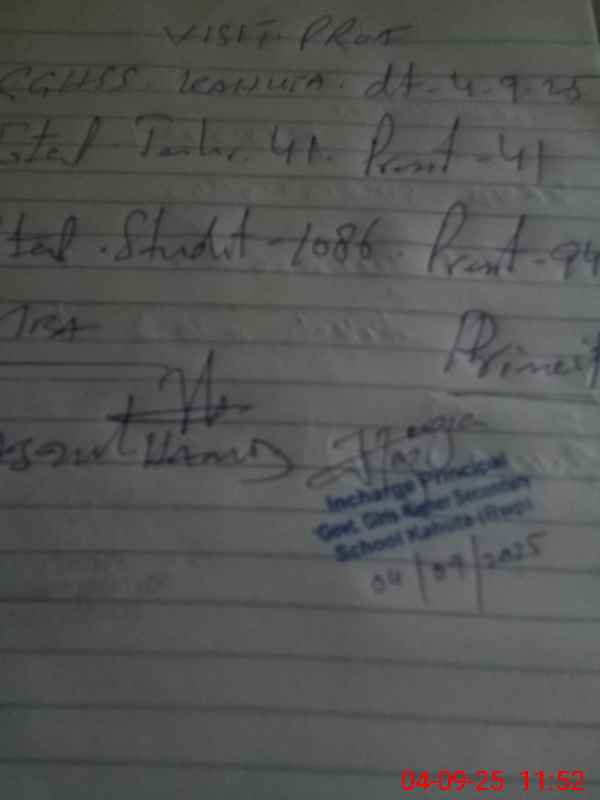 VISIT PROF
GGHSS. KAHUTA. dt. 4.9.25
Total. Teacher. 41. Present - 41
Total. Student - 1086. Present - 94
Principal
HAMID
Incharge Principal
Govt. Girls Higher Secondary
School Kahuta (Rwp)
04/09/2025
04-09-25 11:52